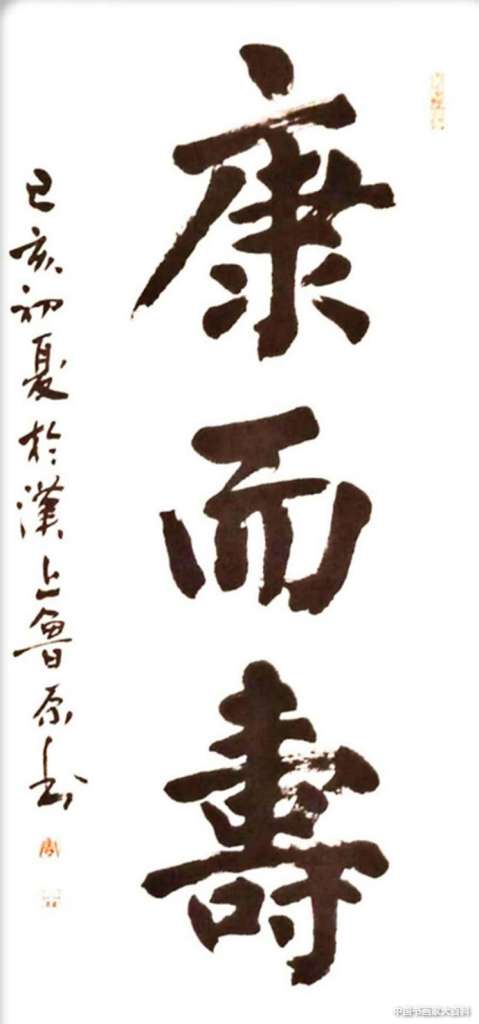 康而壽
己亥初夏於漢上魯原書
中国书画家大百科